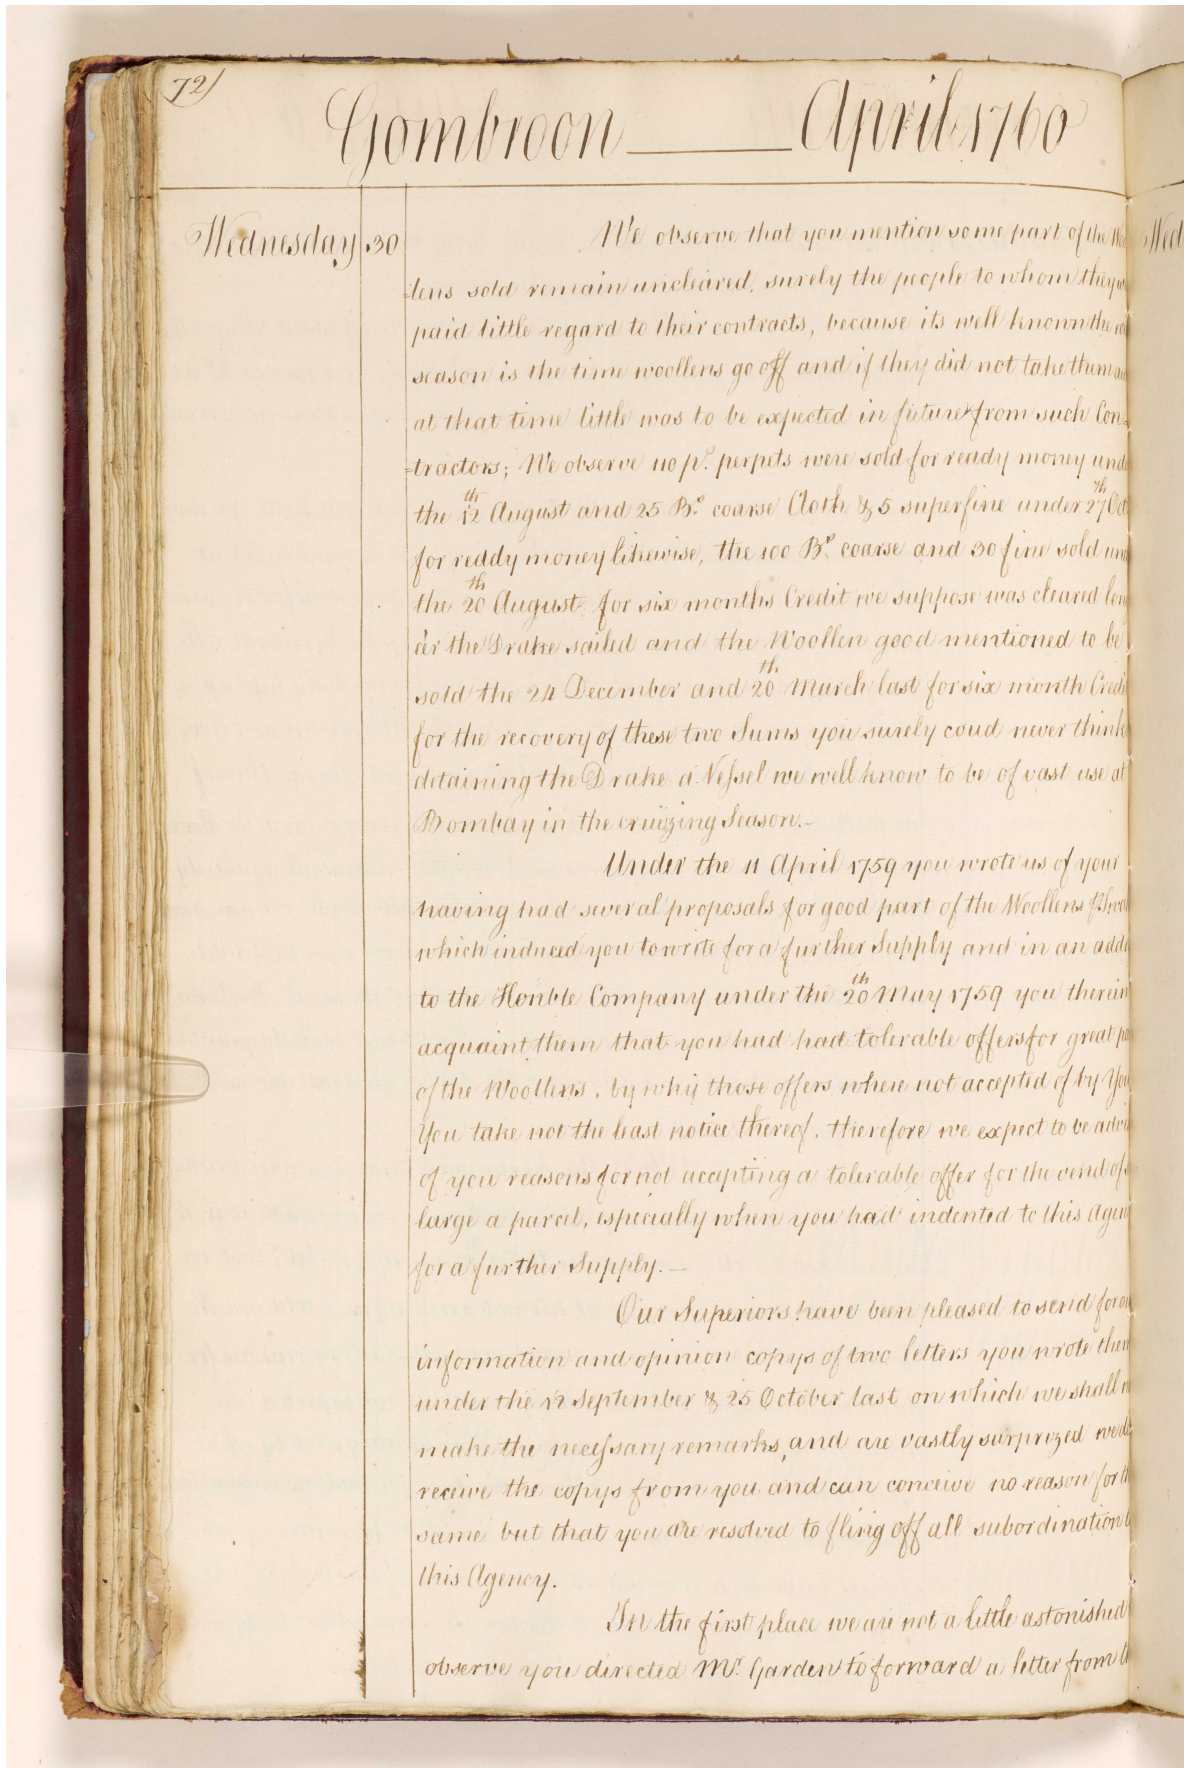 72/
Gombroon April 1760
Wednesday 30 We observe that you mention some part of the
=lens sold remain uncleared, surely the people to whom they
paid little regard to their contracts, because its well known the
season is the time woollens go off and if they did not take them
at that time little was to be expected in future from such Con=
=tractors; We observe 110 ps. perpets were sold for ready money
the 12th August and 25 Bs. coarse Cloth & 5 superfine under 27th
for reddy money likewise, the 100 Bs. coarse and 30 fine sold
the 20th August for six months Credit we suppose was cleared
e'er the Drake sailed and the Woollen good mentioned to be
sold the 24 December and 20th March last for six month
for the recovery of these two Sums you surely coud never think
detaining the Drake a Vessel we well know to be of vast use at
Bombay in the cruizing Season.-
Under the 11 April 1759 you wrote us of your
having had several proposals for good part of the Woollens
which induced you to write for a further Supply and in an
to the Honble Company under the 20th May 1759 you therein
acquaint them that you had had tolerable offers for great
of the Woollens, by why those offers where not accepted of by
You take not the least notice thereof, therefore we expect to be
of you reasons for not accepting a tolerable offer for the vend of
large a parcel, especially when you had indented to this
for a further Supply. —
Our Superiors have been pleased to send for
information and opinion copys of two letters you wrote
under the 12 September & 25 October last on which we shall
make the necessary remarks, and are vastly surprized
receive the copys from you and can conceive no reason for
same but that you are resolved to fling off all subordination
this Agency.
In the first place we are not a little astonished
observe you directed Mr. Garden to forward a letter from